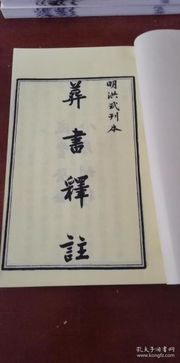 明洪武刊本
葬書釋註
孔夫子旧书网